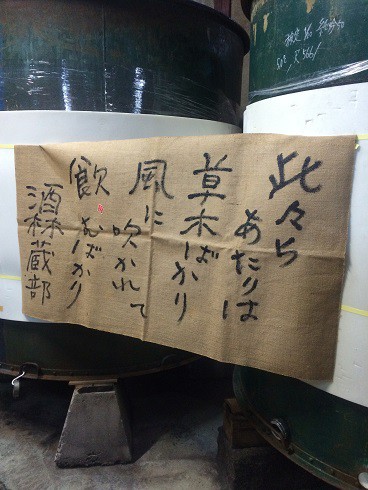 此々ら
あたりは
草木ばかり
風に
吹かれて
飲むばかり
酒林蔵部